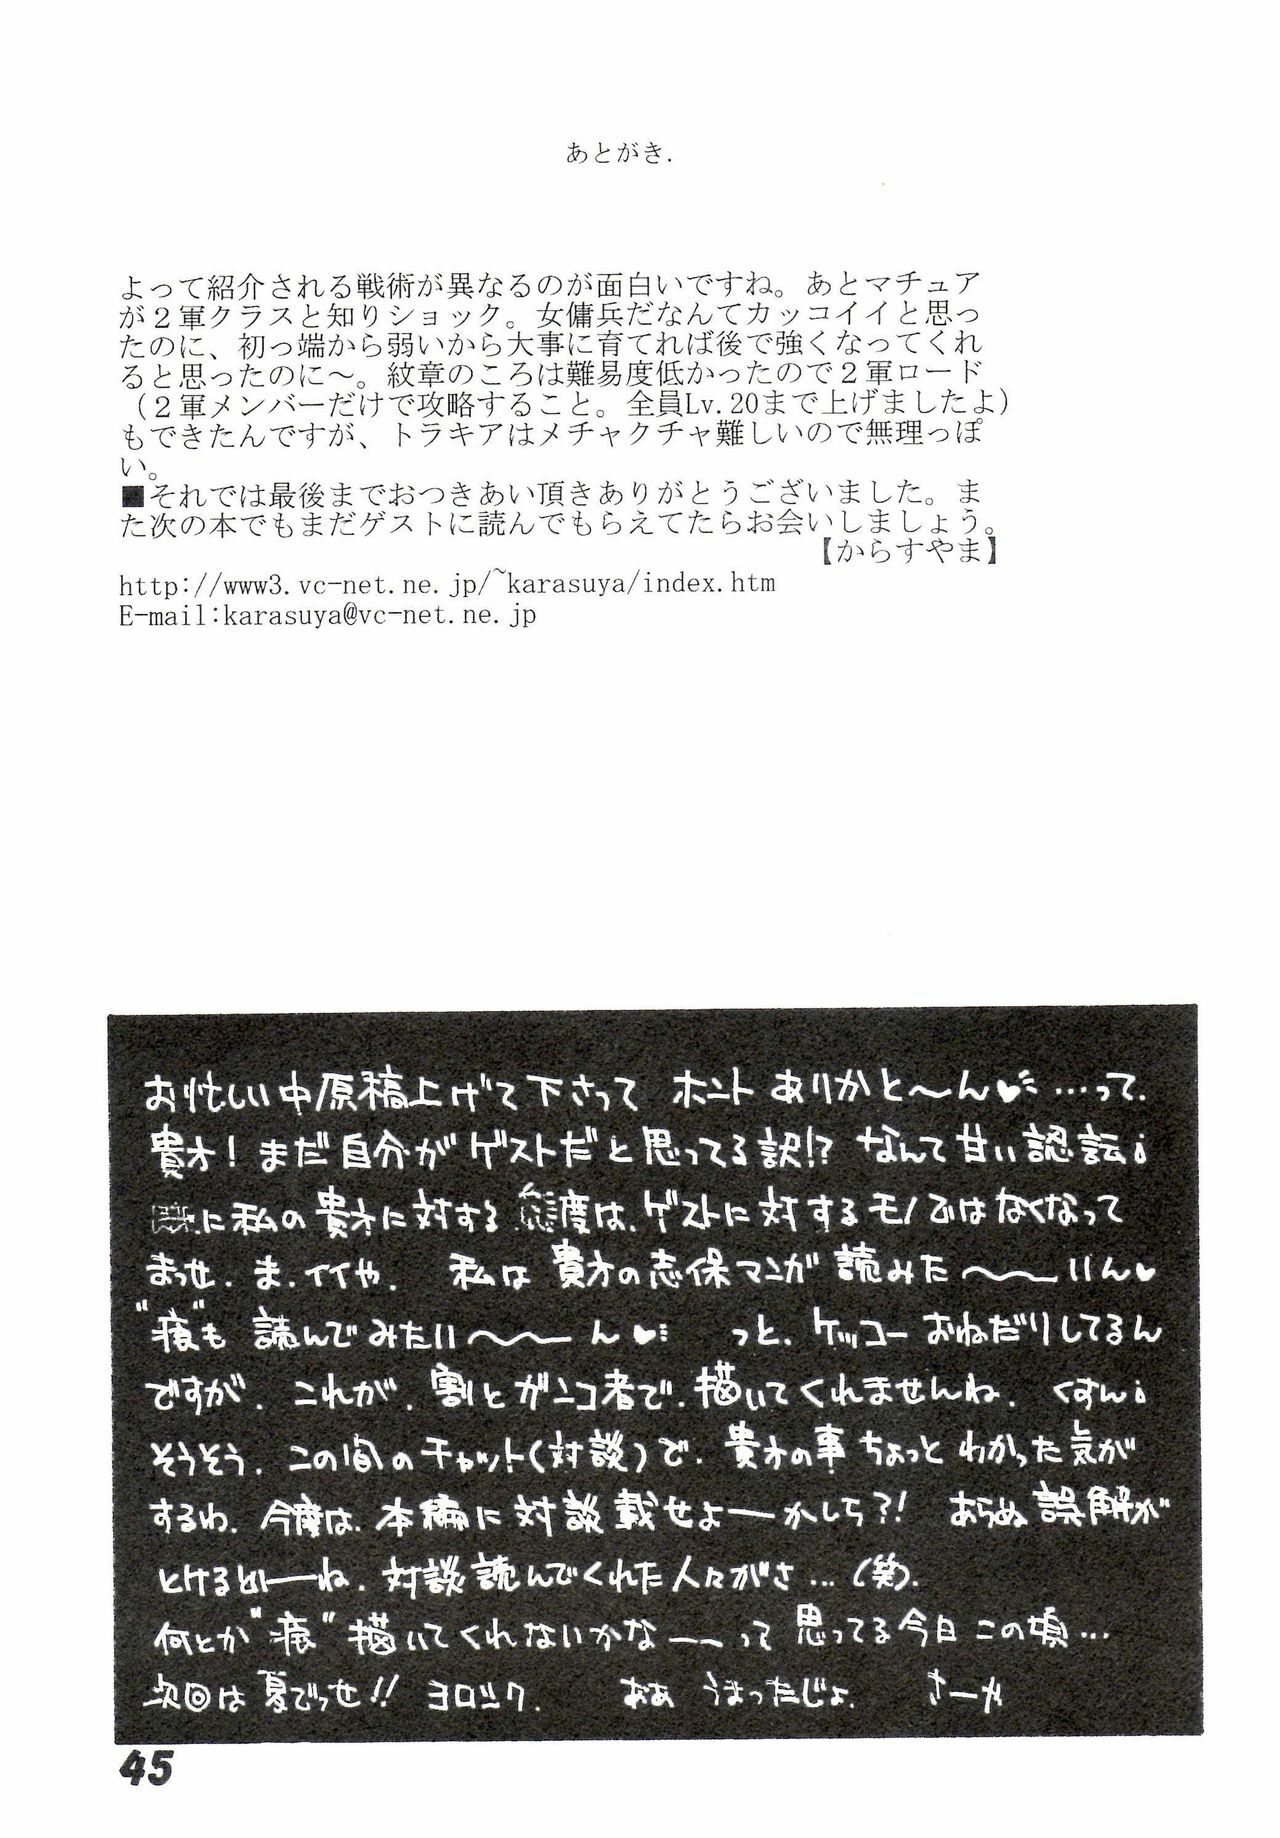 あとがき.
よって紹介される戦術が異なるのが面白いですね。あとマチュア
が２軍クラスと知りショック。女傭兵だなんてカッコイイと思っ
たのに、初っ端から弱いから大事に育てれば後で強くなってくれ
ると思ったのに～。紋章のころは難易度低かったので２軍ロード
（２軍メンバーだけで攻略すること。全員Lv.20まで上げましたよ）
もできたんですが、トラキアはメチャクチャ難しいので無理っぽ
い。
■それでは最後までおつきあい頂きありがとうございました。ま
た次の本でもまだゲストに読んでもらえてたらお会いしましょう。
【からすやま】
http://www3.vc-net.ne.jp/~karasuya/index.htm
E-mail:karasuya@vc-net.ne.jp
お忙しい中原稿上げて下さって ホント ありがと～ん♥ …って.
貴方！まだ自分がゲストだと思ってる訳!? なんて甘い認
に私の貴方に対する態度は、ゲストに対するモノではなくなって
まっせ. ま.イイや. 私は貴方の志保マンガ読みた～～いん♥
も 読んでみたい～～ん♥ っと、ケッコーおねだりしてるん
ですが. これが. 割とガンコ者で、描いてくれませんね. くすん
そうそう. この間のチャット(対談)で、貴方の事ちょっとわかった気が
するわ. 今度は、本編に対談載せよーかしら?! あらぬ誤解が
とけるどーね. 対談読んでくれた人々がさ…(笑).
何とか 描いてくれないかなーって思ってる今日この頃…
次回は夏でっせ!! ヨロシク. おあ うまったじょ. さーや
45